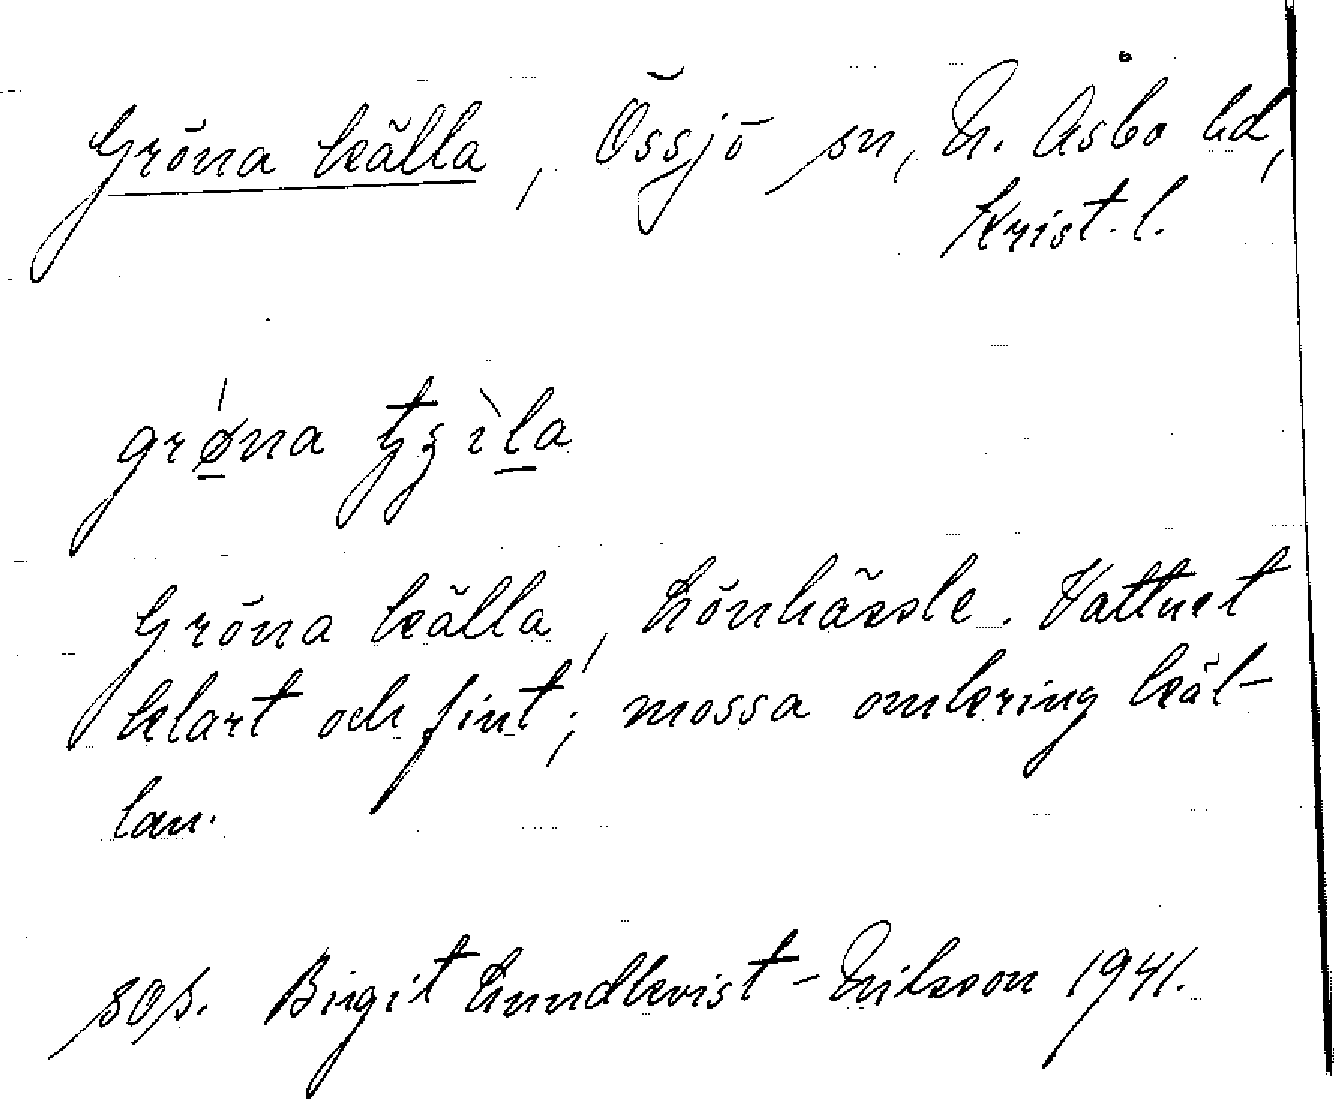 Gröna källa, Össjö sn, N. Åsbo hd,
Krist. l.
grǿ̲na ʈʂìl̲a
Gröna källa, Lönhässle. Vattnet
klart och fint; mossa omkring käl-
lan.
sps. Birgit Lundkvist-Nilsson 1941.